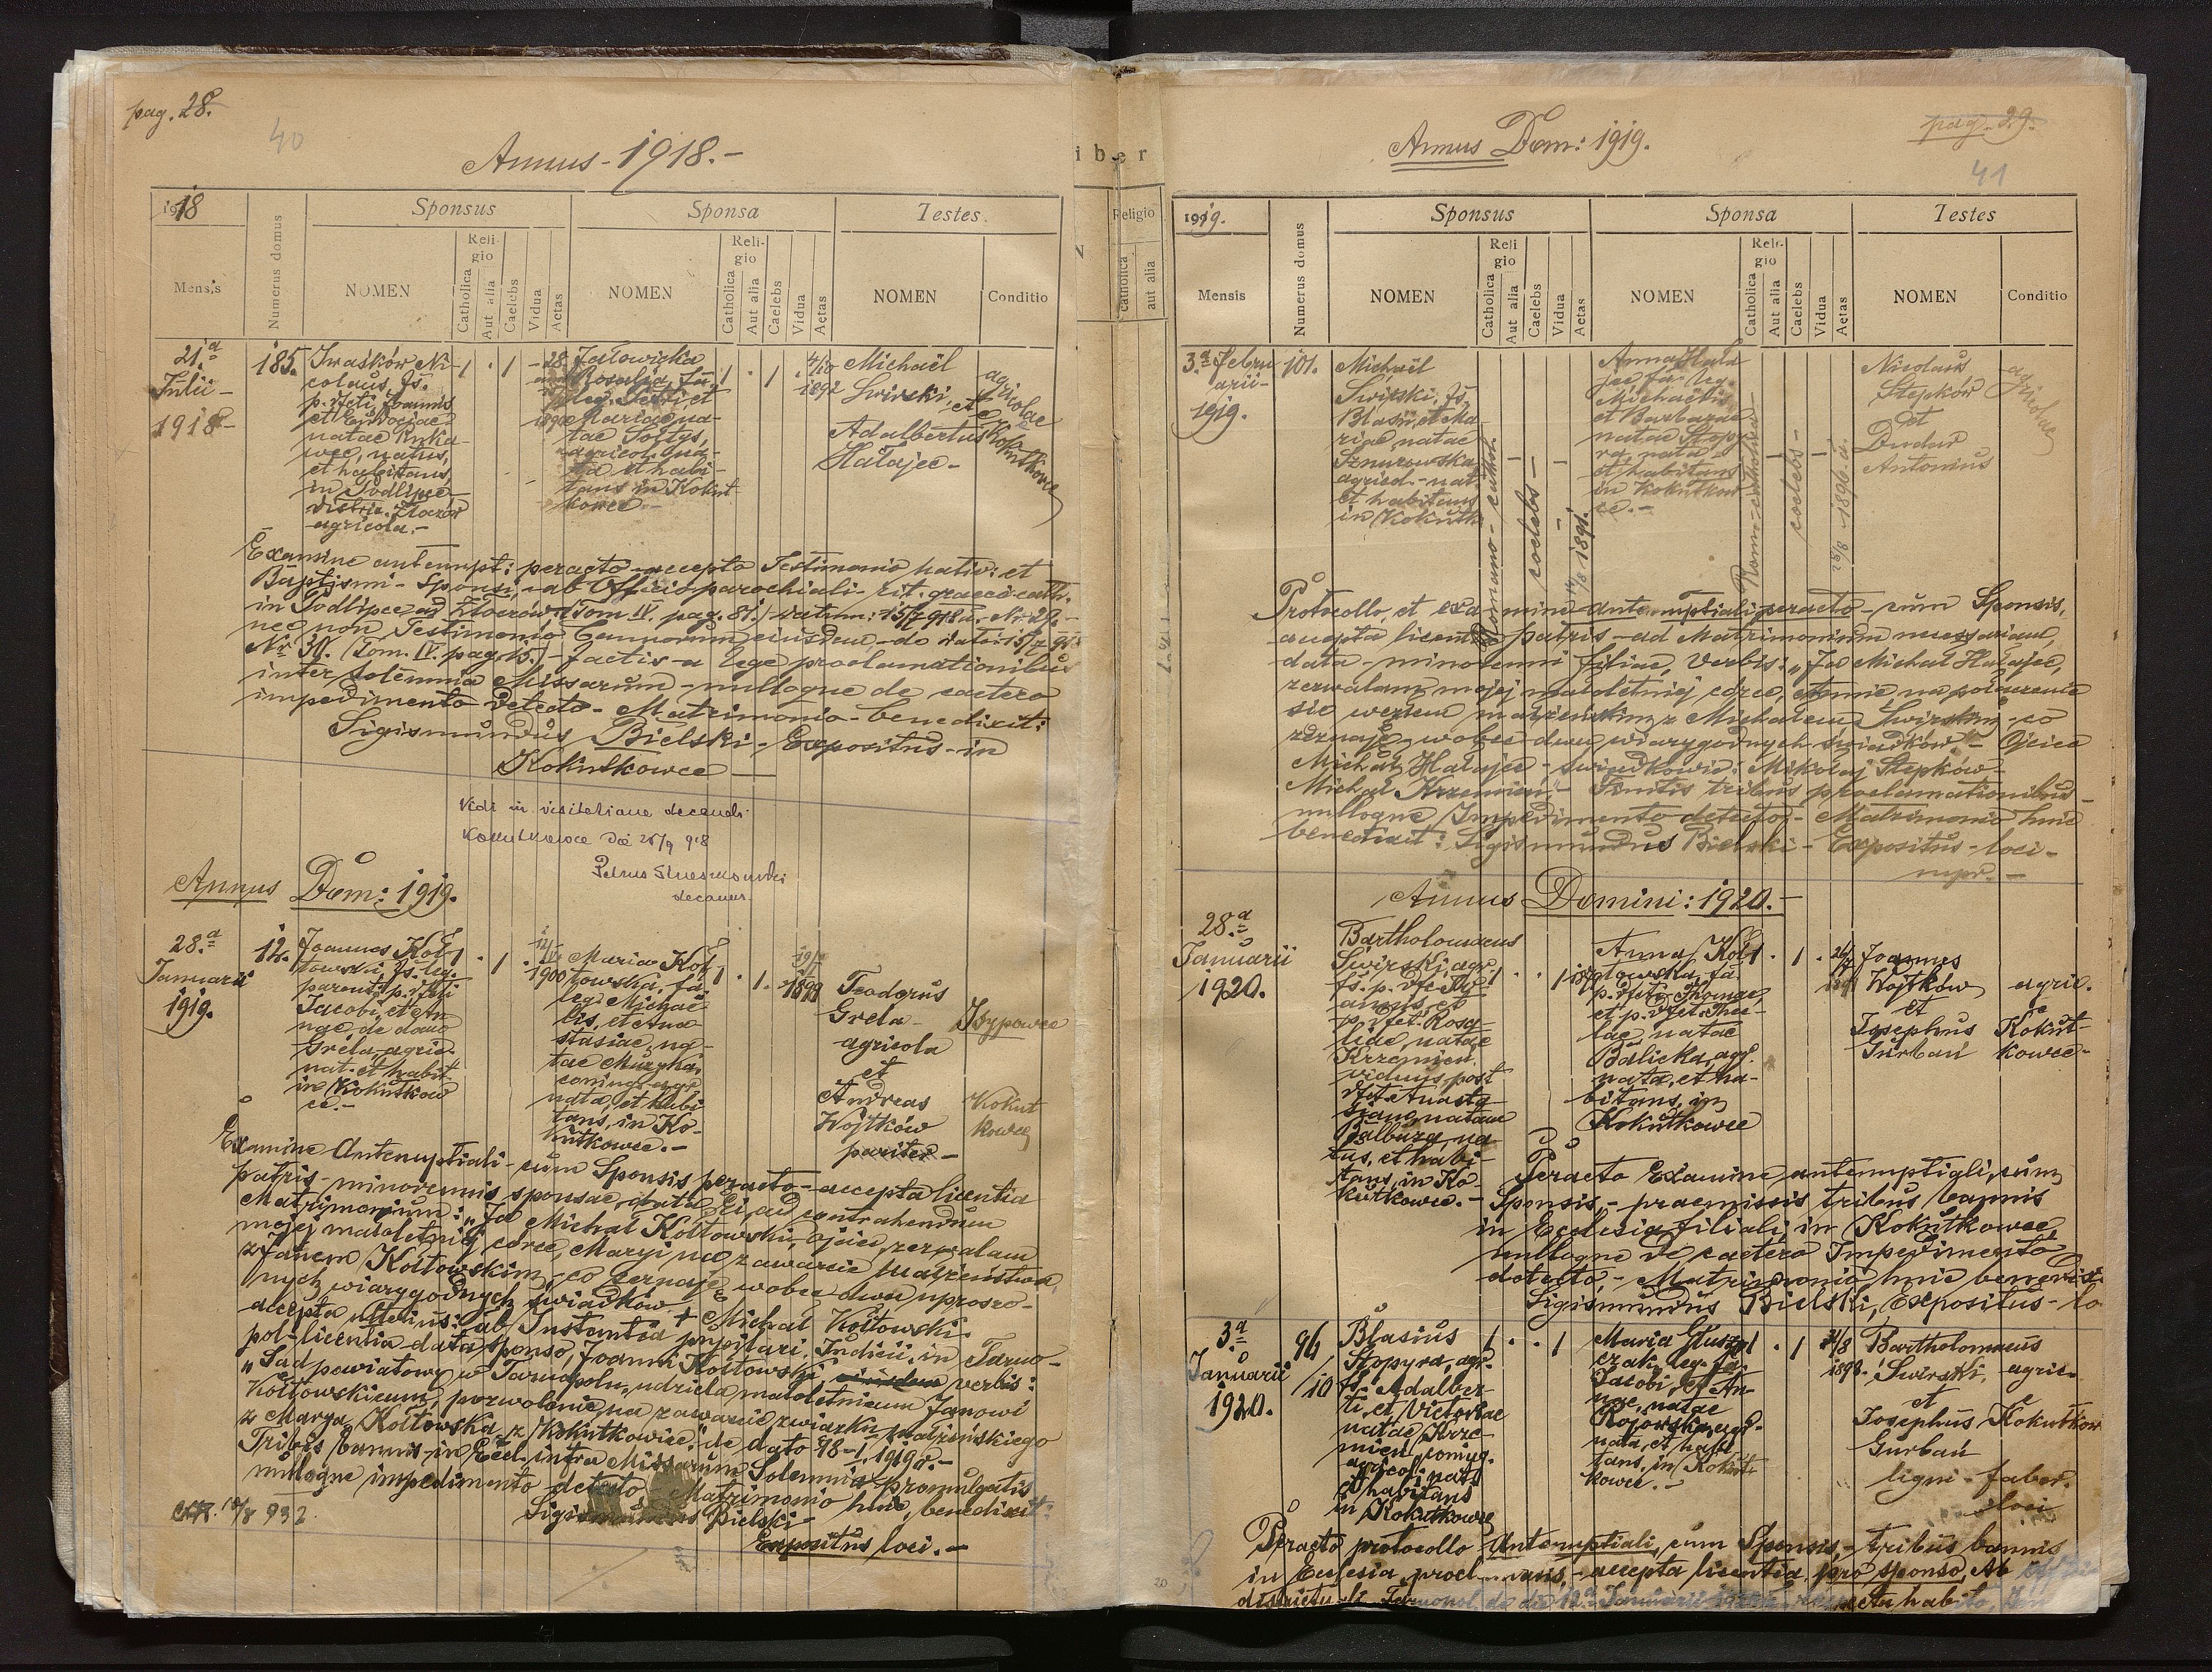 pag. 28.
40
Annus - 1918. -
1918
Mensis
Numerus domus
Sponsus
NOMEN
Religio
Catholica
Aut alia
Caelebs
Vidua
Aetas
Sponsa
NOMEN
Religio
Catholica
Aut alia
Caelebs
Vidua
Aetas
Testes.
NOMEN
Conditio
21.a
Julii -
1918 -
185.
Iwasków Ni-
colaus, fs.
p. defti Joannis
et Eudociae
natae
natus,
et habitans
in Podlipce
distric. Złoczów
agricola. -
1 . 1
28
Jałowicka
Rosalia, fa.
leg.
Mariae na-
tae Sołtys,
agricol. na-
ta et habi-
tans in Kokut-
kowce. -
1 . 1
4/10
1892
Michaël
Swirski, et
Adalbertus
Hałajec -
agricolae
e Kokutkowce
Examine antenupt: peracto - accepto Testimonio nativ: et
Baptismi - Sponsi, - ab Officio parochiali - rit. graeco cath.
in Podlipce ad Złoczów, (Tom IV. pag. 81.) datum: 15/7 918 a. Nr. 29. -
nec non Testimonio Bannorum eiusdem - de dato: 15/7 918
Nr. 30. (Tom. IV. pag. 15.) - factis - a lege proclamationibus
inter solemnia Missarum - nulloque de caetero
impedimento detecto - Matrimonio - benedixit:
Sigismundus Bielski - Expositus - in
Kokutkowce
Vidi in visitatione decanali
Kokutkowce die 25/9 918
Petrus
decanus
Annus Dom: 1919.
28.a
Januarii
1919.
12.
Joannes Koł-
towski, fs. leg.
parent. p. defti
Jacobi, et An-
nae, de domo
Grela - agric.
nat. et habit.
in Kokutkow
ce. -
1 . 1
12/
1900
Maria Koł-
towska, fa.
leg. Michaë
lis, et Ana-
stasiae, na-
tae Muzyka,
coniug. agr.
nata, et habi
tans, in Ko-
kutkowce. -
1 . 1
1899
Teodorus
Grela -
agricola
et
Andreas
Wojtków
pariter -
Isypowce
Kokut
kowce
Examine Antenuptiali - cum Sponsis peracto - accepta licentia
patris - minorennis sponsae, data Ei, ad contrahendum
Matrimonium: „Ja Michał Kołtowski, Ojciec, zezwalam
mojej małoletniej córce, Maryi na zawarcie małżeństwa,
z Janem Kołtowskim, co zeznaję wobec dwu uproszo-
nych wiarygodnych świadków + Michał Kołtowski.
accepta ulterius: ab Instantia pupilari, Indicii in Tarno-
pol - licentia data sponso, Joanni Kołtowski, verbis:
„Sąd powiatowy w Tarnopolu, udziela małoletniemu Janowi
Kołtowskiemu, pozwolenie, na zawarcie związku małżeńskiego
z Maryą Kołtowską z Kokutkowiec; de dato 18-I. 1919 r. -
Tribus bannis - in Eccl. intra Missarum Solemnia promulgatis
nulloque impedimento detecto Matrimonio huic, benedixit:
Sigismundus Bielski -
Expositus loci. -
932.
iber
Religio
Catholica
aut alia
Annus Dom: 1919.
pag. 29.
41
1919.
Mensis
Numerus domus
Sponsus
NOMEN
Religio
Catholica
Aut alia
Caelebs
Vidua
Aetas
Sponsa
NOMEN
Religio
Catholica
Aut alia
Caelebs
Vidua
Aetas
Testes
NOMEN
Conditio
3.a Febru
arii -
1919.
101.
Michaël
Swirski, fs.
Blasii, et Ma-
riae natae
Sznurowska,
agricol. - nat.
et habitans
in Kokutk
Romano - cathol.
coelebs -
1891.
Anna Hała
jec fa. leg.
Michaëlis
et Barbarae
natae Stopy-
ra, nata
et habitans
in Kokutkow
ce. -
Romano - catholica -
coelebs -
18/8 1896. a.
Nicolaus
Stepków
et
Dudar
Antonius
agricolae
Protocollo, et examine antenuptiali peracto - cum Sponsis,
accepta licentia patris - ad Matrimonium necessariam,
data - minorenni filiae, verbis: „Ja Michał Hałajec,
zezwalam mojej małoletniej córce, Annie na połączenie
się węzłem małżeńskim z Michałem Świrskim - co
zeznaję wobec dwu wiarygodnych świadków. - Ojciec
Michał Hałajec - świadkowie: Mikołaj Stepków -
Michał Krzemien. - Finitis tribus proclamationibus -
nulloque Impedimento detecto - Matrimonio huic
benedixit: Sigismundus Bielski - Expositus - loci -
mpr. -
Annus Domini: 1920. -
28.a
Januarii
1920.
Bartholomaeus
Swirski, agr.
fs. p. dft.
et
p. dfet. Rosa-
liae, natae
Krzemien.
viduus, post
dfet. Anasta-
siam, natam
Balbuza, na-
tus, et habi-
tans, in Ko-
kutkowce. -
1 . . 1
Anna Koł-
towska, fa.
p. dfeti Thomae,
et p. dfet. Thec-
lae, natae
Balicka, agr.
nata, et ha-
bitans, in
Kokutkowce
1 . 1 .
Joannes
Wojtków
et
Josephus
Gurban
agric.
e
Kokut-
kowce -
Peracto Examine antenuptiali, cum
Sponsis - praemissis tribus bannis
in Ecclesia filiali, in Kokutkowce,
nulloque de caetero Impedimento
detecto, - Matrimonio huic benedixi:
Sigismundus Bielski, Expositus - lo
3.a
Januarii
1920.
96
/10
Blasius
Stopyra, agr.
fs. Adalber-
ti, et Victoriae
natae Krze-
mien, coniug.
agricol. nat.
et habitans
in Kokutkowce
1 . . 1
Maria Głusz-
czak, leg. fa.
Jacobi, et An-
nae, natae
Rojowska, agr.
nata, et habi
tans, in Kokut
kowce. -
1 . 1
31/8
1898.
Bartholomaeus
Swirski,
et
Josephus
Gurban
ligni - faber.
loci
agric.
e
Kokutkow
Peracto protocollo Antenuptiali, cum Sponsis, - tribus bannis
in Ecclesia, - accepta licentia, pro sponso, Ab
Tarnopol, de die 12.a Januarii